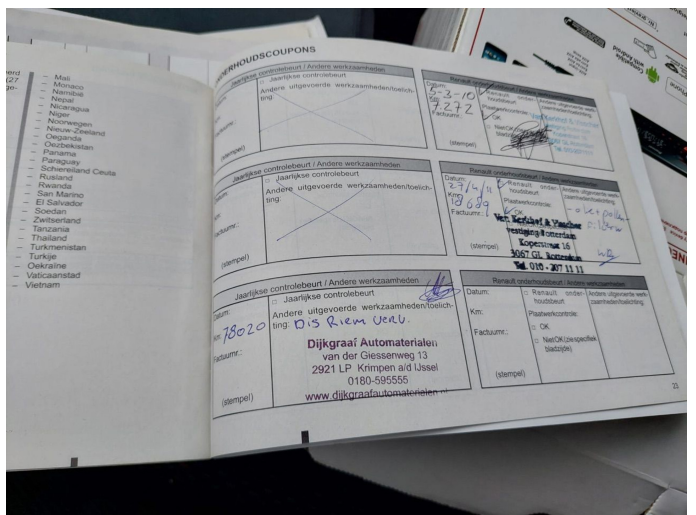 ONDERHOUDSCOUPONS
– Mali
– Monaco
– Namibië
– Nepal
– Nicaragua
– Niger
– Noorwegen
– Nieuw-Zeeland
– Oeganda
– Oezbekistan
– Panama
– Paraguay
– Schereiland Ceuta
– Rusland
– Rwanda
– San Marino
– El Salvador
– Soedan
– Zwitserland
– Tanzania
– Thailand
– Turkmenistan
– Turkije
– Oekraïne
– Vaticaanstad
– Vietnam
Jaarlijkse controlebeurt / Andere werkzaamheden
□ Jaarlijkse controlebeurt
Andere uitgevoerde werkzaamheden/toelich-
ting:
Km:
Factuurnr.:
(stempel)
Renault onderhoudsbeurt / Andere werkzaamheden
Datum:
5-3-10
Km:
7.272
Factuurnr.:
Renault onder-
houdsbeurt
Plaatwerkcontrole:
OK
(stempel)
Jaarlijkse controlebeurt / Andere werkzaamheden
□ Jaarlijkse controlebeurt
Andere uitgevoerde werkzaamheden/toelich-
ting:
Datum:
Km:
Factuurnr.:
(stempel)
Renault onderhoudsbeurt / Andere werkzaamheden
Datum:
27/4/11
Km:
18689
Factuurnr.:
Renault onder-
houdsbeurt
Andere uitgevoerde werk-
zaamheden/toelichting:
Plaatwerkcontrole:
OK
vestiging Rotterdam
Koperstraat 16
3067 GL Rotterdam
Tel. 010 - 207 11 11
(stempel)
Jaarlijkse controlebeurt / Andere werkzaamheden
□ Jaarlijkse controlebeurt
Andere uitgevoerde werkzaamheden/toelich-
ting: Dis Riem verv.
Datum:
Km: 78020
Factuurnr.:
Dijkgraaf Automaterialen
van der Giessenweg 13
2921 LP Krimpen a/d IJssel
0180-595555
www.dijkgraafautomaterialen.nl
(stempel)
Renault onderhoudsbeurt / Andere werkzaamheden
Datum:
Km:
Factuurnr.:
□ Renault onder-
houdsbeurt
Andere uitgevoerde werk-
zaamheden/toelichting:
Plaatwerkcontrole:
□ OK
□ Niet OK (zie specifiek
bladzijde)
(stempel)
23
Compatible
with Android
iPhone